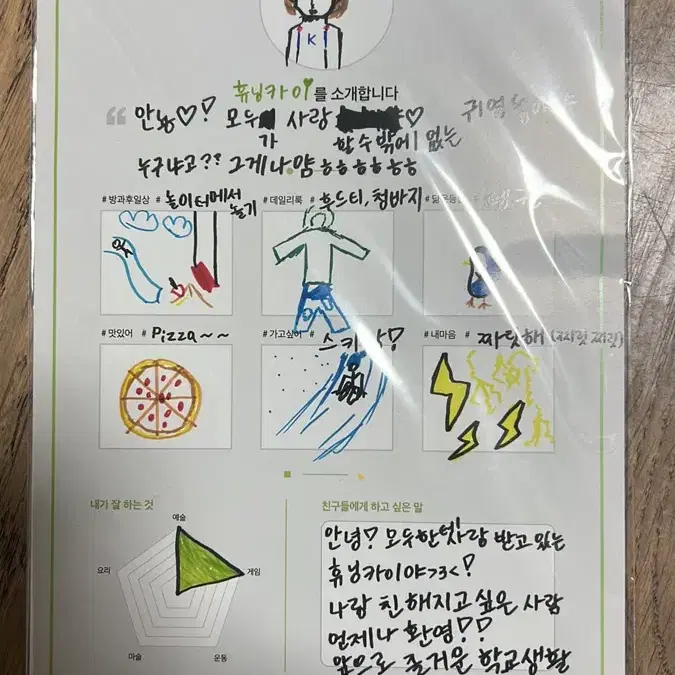 K
휴닝카이를 소개합니다
안뇽♡! 모두가 사랑 할 수밖에 없는
누구냐고?? 그게 나.얌 ㅎㅎㅎㅎㅎㅎ
# 방과후일상 # 놀이터에서 놀기
# 데일리룩 # 후드티, 청바지
# 맛있어 # Pizza~~
# 가고싶어 #
# 내마음 # 짜릿해 (찌릿찌릿)
내가 잘 하는 것
예술
요리
게임
마술
운동
친구들에게 하고 싶은 말
안녕? 모두한테 사랑 받고 있는
휴닝카이야>3<!
나랑 친해지고 싶은 사람
언제나 환영!!
앞으로 즐거운 학교생활